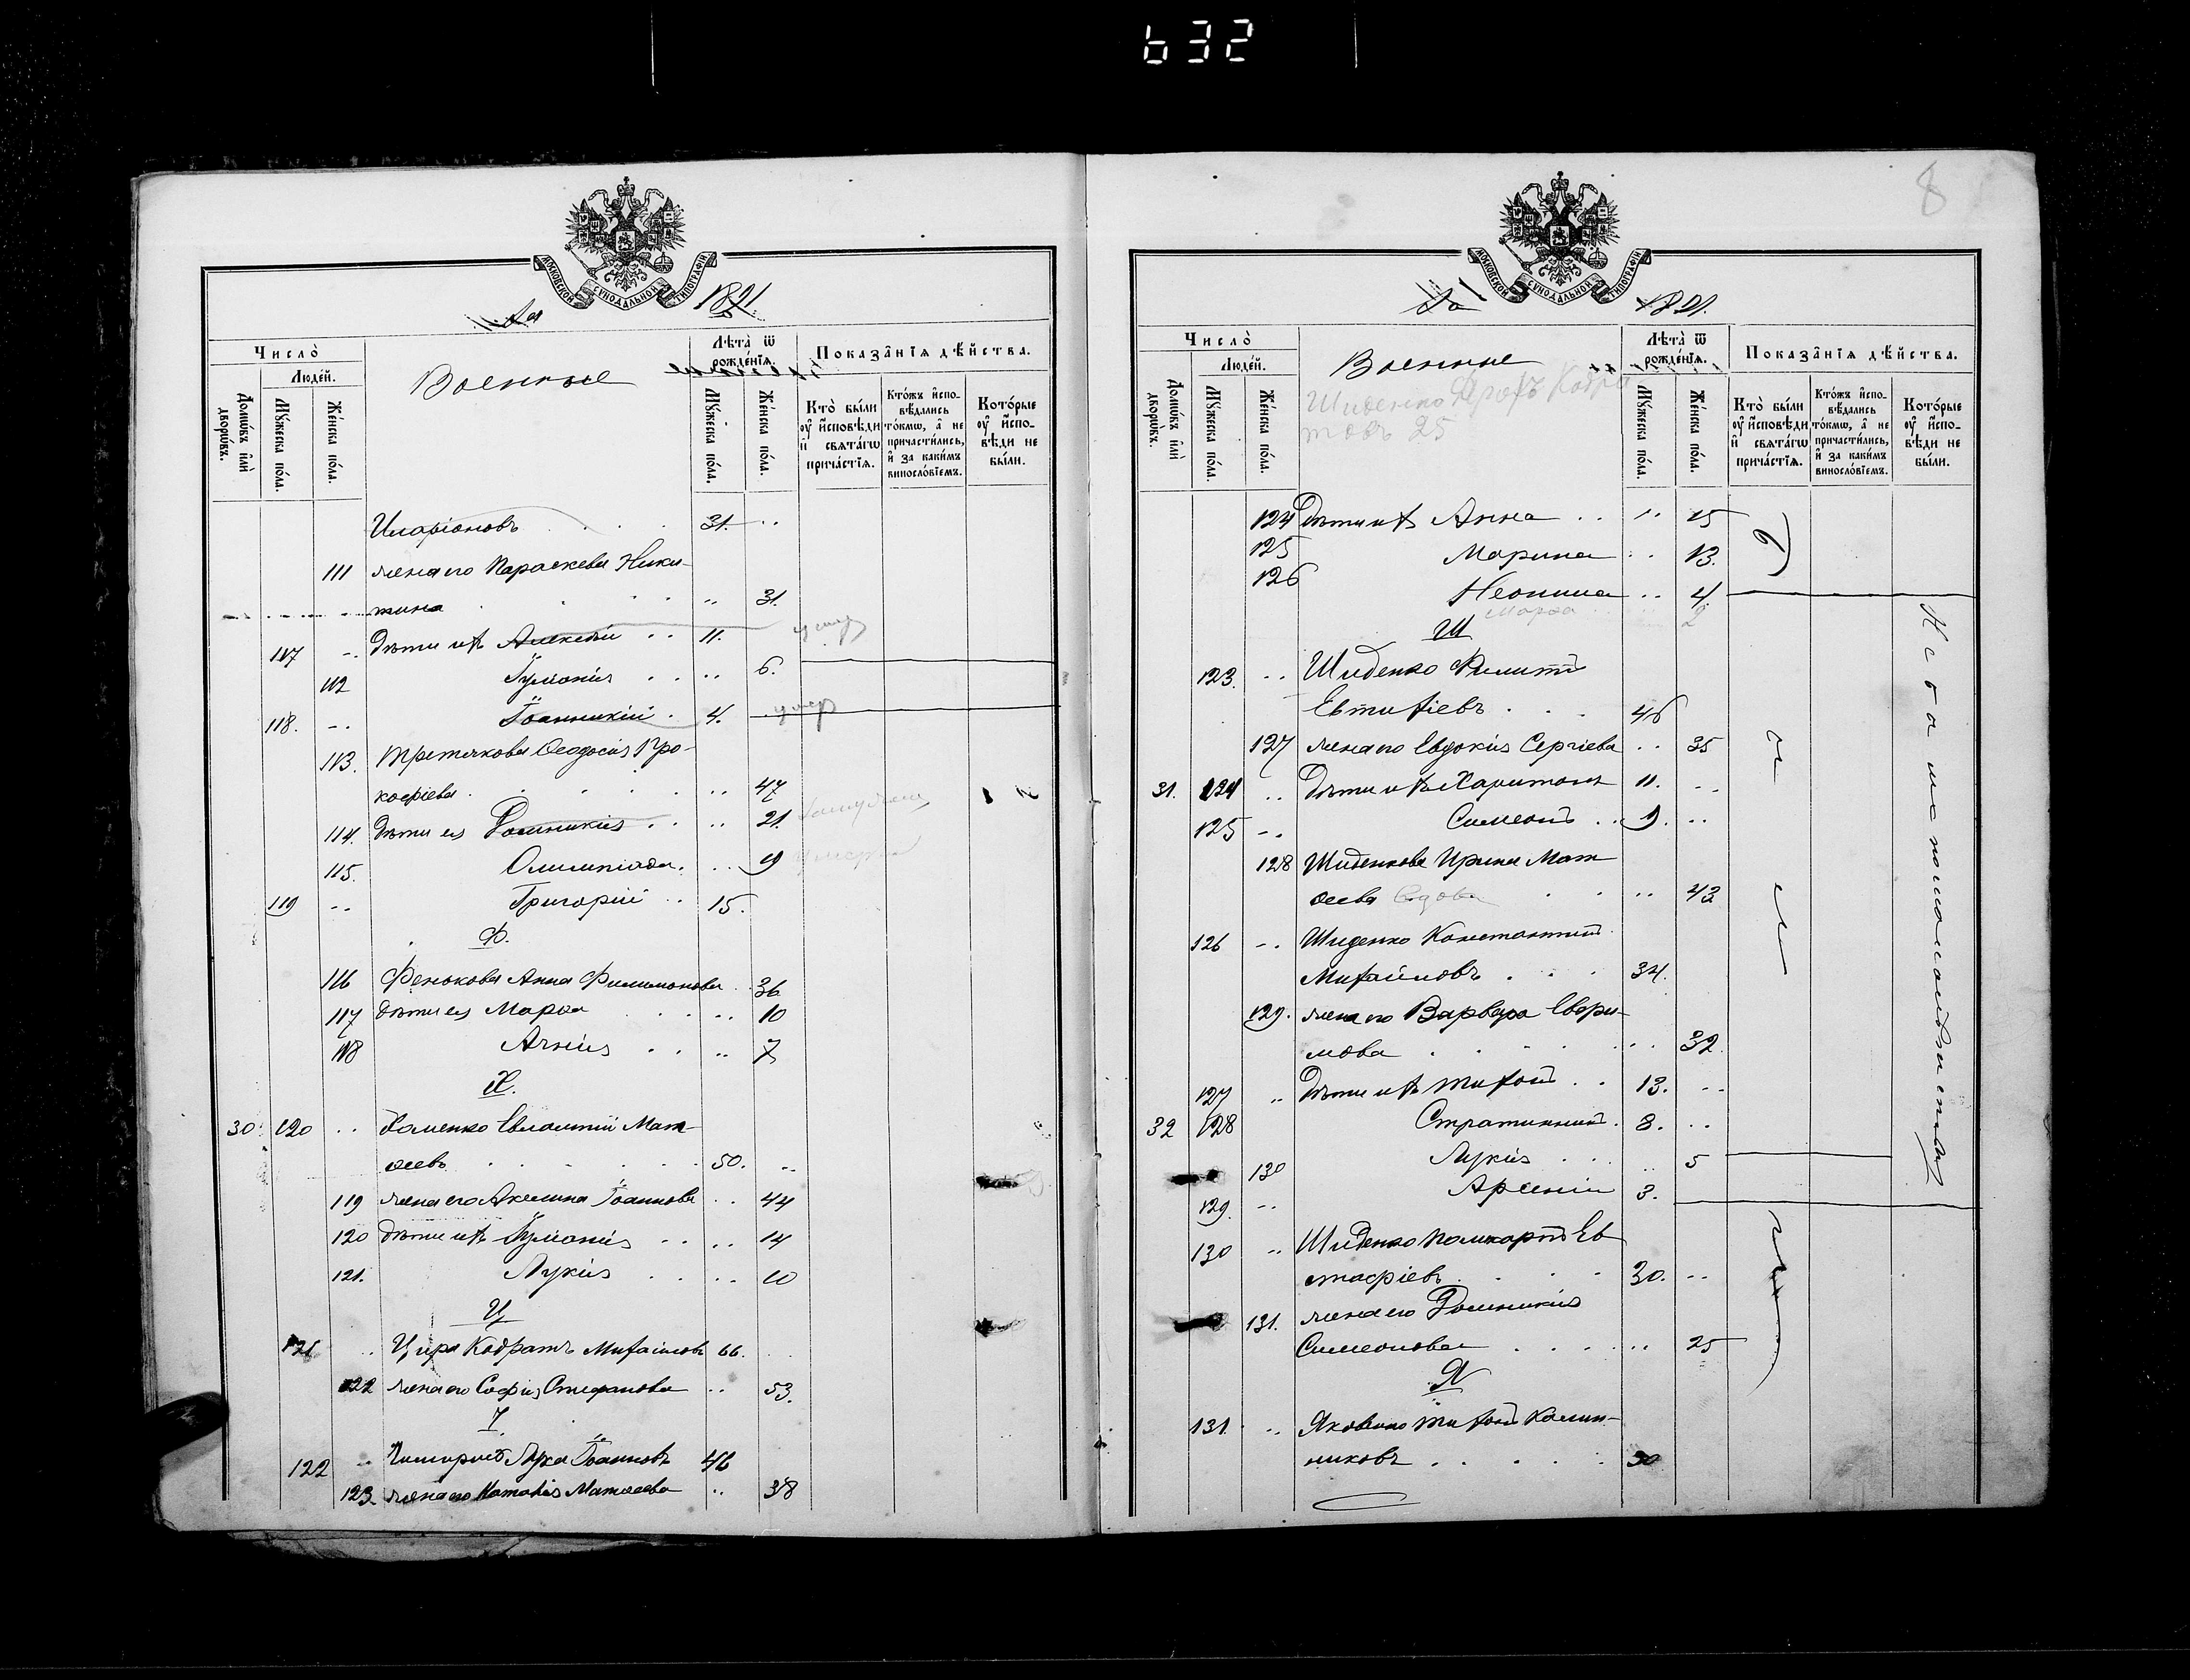 632
МОСКОВСКОЙ СѴНОДАЛЬНОЙ ТИПОГРАФІИ
За 1891
Число̀
Людей.
Домѡ́въ и҆лѝ дворѡ́въ.
Мꙋ́жеска по́ла.
Же́нска по́ла.
Военные
Лѣ́та ѿ рожде́нїѧ.
Мꙋ́жеска по́ла.
Же́нска по́ла.
Показа̑нїѧ дѣ́йства.
Кто̀ бы́ли оу҆ и҆сповѣди и҆ свѧта́гѡ прича́стїѧ.
Кто́жъ и҆спо-вѣ́дались то́кмѡ, а҆ не причасти́лись, и҆ за каки́мъ виносло́вїемъ.
Кото́рые оу҆ и҆спо-вѣди не бы́ли.
Иларіоновъ 31.
111 жена его Параскева Ники-
тина 31.
117 дѣти ихъ Алексій 11.
112 Іуліанія 6.
118. Іоанникій 4. умер
113. Третякова Ѳеодосія Про-
кофіева 47
114. дѣти ея Домникія 21.
115. Олимпіада 19 умерла
119 Григорій 15.
Ф.
116 Фенокова Анна Филимонова 36
117 дѣти ея Марѳа 10
118 Агнія 7
Х.
30. 120 Хоменко Евлампій Мат-
ѳеевъ 50.
119 жена его Акилина Іоаннова 44
120 дѣти ихъ Іуліанія 14
121. Лукія 10
Ц
121 Цира Кодратъ Михаиловъ 66.
122 жена его Софія Стефанова 53.
Ч
122 Лука Іоанновъ 46
123. жена его Наталія Матѳеева 38
8
МОСКОВСКОЙ СѴНОДАЛЬНОЙ ТИПОГРАФІИ
За 1891.
Число̀
Людей.
Домѡ́въ и҆лѝ дворѡ́въ.
Мꙋ́жеска по́ла.
Же́нска по́ла.
Военные
Шиденко Кодра
товъ 25
Лѣ́та ѿ рожде́нїѧ.
Мꙋ́жеска по́ла.
Же́нска по́ла.
Показа̑нїѧ дѣ́йства.
Кто̀ бы́ли оу҆ и҆сповѣди и҆ свѧта́гѡ прича́стїѧ.
Кто́жъ и҆спо-вѣ́дались то́кмѡ, а҆ не причасти́лись, и҆ за каки́мъ виносло́вїемъ.
Кото́рые оу҆ и҆спо-вѣди не бы́ли.
124 дѣти ихъ Анна 15
125 Марина 13.
126 Неонила 4
Марѳа 2
Ш
123. Шиденко Филиппъ
Евтихіевъ 46
127 жена его Евдокія Сергіева 35
31. 124 дѣти ихъ Харитонъ 11.
125 Симеонъ 9.
128 Шиденкова Ирина Мат
ѳеева вдова 43
126 Шиденко Константинъ
Михаиловъ 34.
129. жена его Варвара Евфи-
мова 32
127 дѣти ихъ Тихонъ 13.
32 128 Стратоникъ 8.
130 Лукія 5
129. Арсеній 3.
130 Шиденко Поликарпъ Ев
стафіевъ 30.
131. жена его Домникія
Симеонова 25
Я
131. Яковенко Тихонъ Калин-
никовъ 30
Были
По малолѣтству